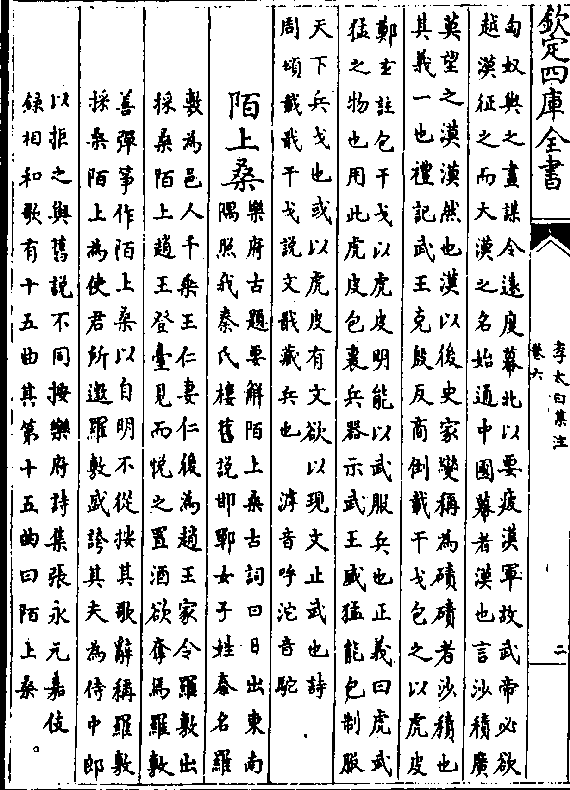 欽定四庫全書
李太白集注
卷六
二
匈奴與之畫謀令遠度幕北以要疲漢軍故武帝必欲
越漠征之而大漠之名始通中國幕者漠也言沙積廣
莫望之漠漠然也漢以後史家變稱為磧磧者沙積也
其義一也禮記武王克殷反商倒載干戈包之以虎皮
鄭玄註包干戈以虎皮明能以武服兵也正義曰虎武
猛之物也用此虎皮包裹兵器示武王威猛能包制服
天下兵戈也或以虎皮有文欲以現文止武也詩
周頌載戢干戈説文戢藏兵也 滹音呼沱音駝
陌上桑
樂府古題要解陌上桑古詞曰日出東南
隅照我秦氏樓舊説邯鄲女子姓秦名羅
敷為邑人千乘王仁妻仁後為趙王家令羅敷出
採桑陌上趙王登臺見而悦之置酒欲奪焉羅敷
善彈箏作陌上桑以自明不從按其歌辭稱羅敷
採桑陌上為使君所邀羅敷盛誇其夫為侍中郎
以拒之與舊説不同按樂府詩集張永元嘉伎
録相和歌有十五曲其第十五曲曰陌上桑。